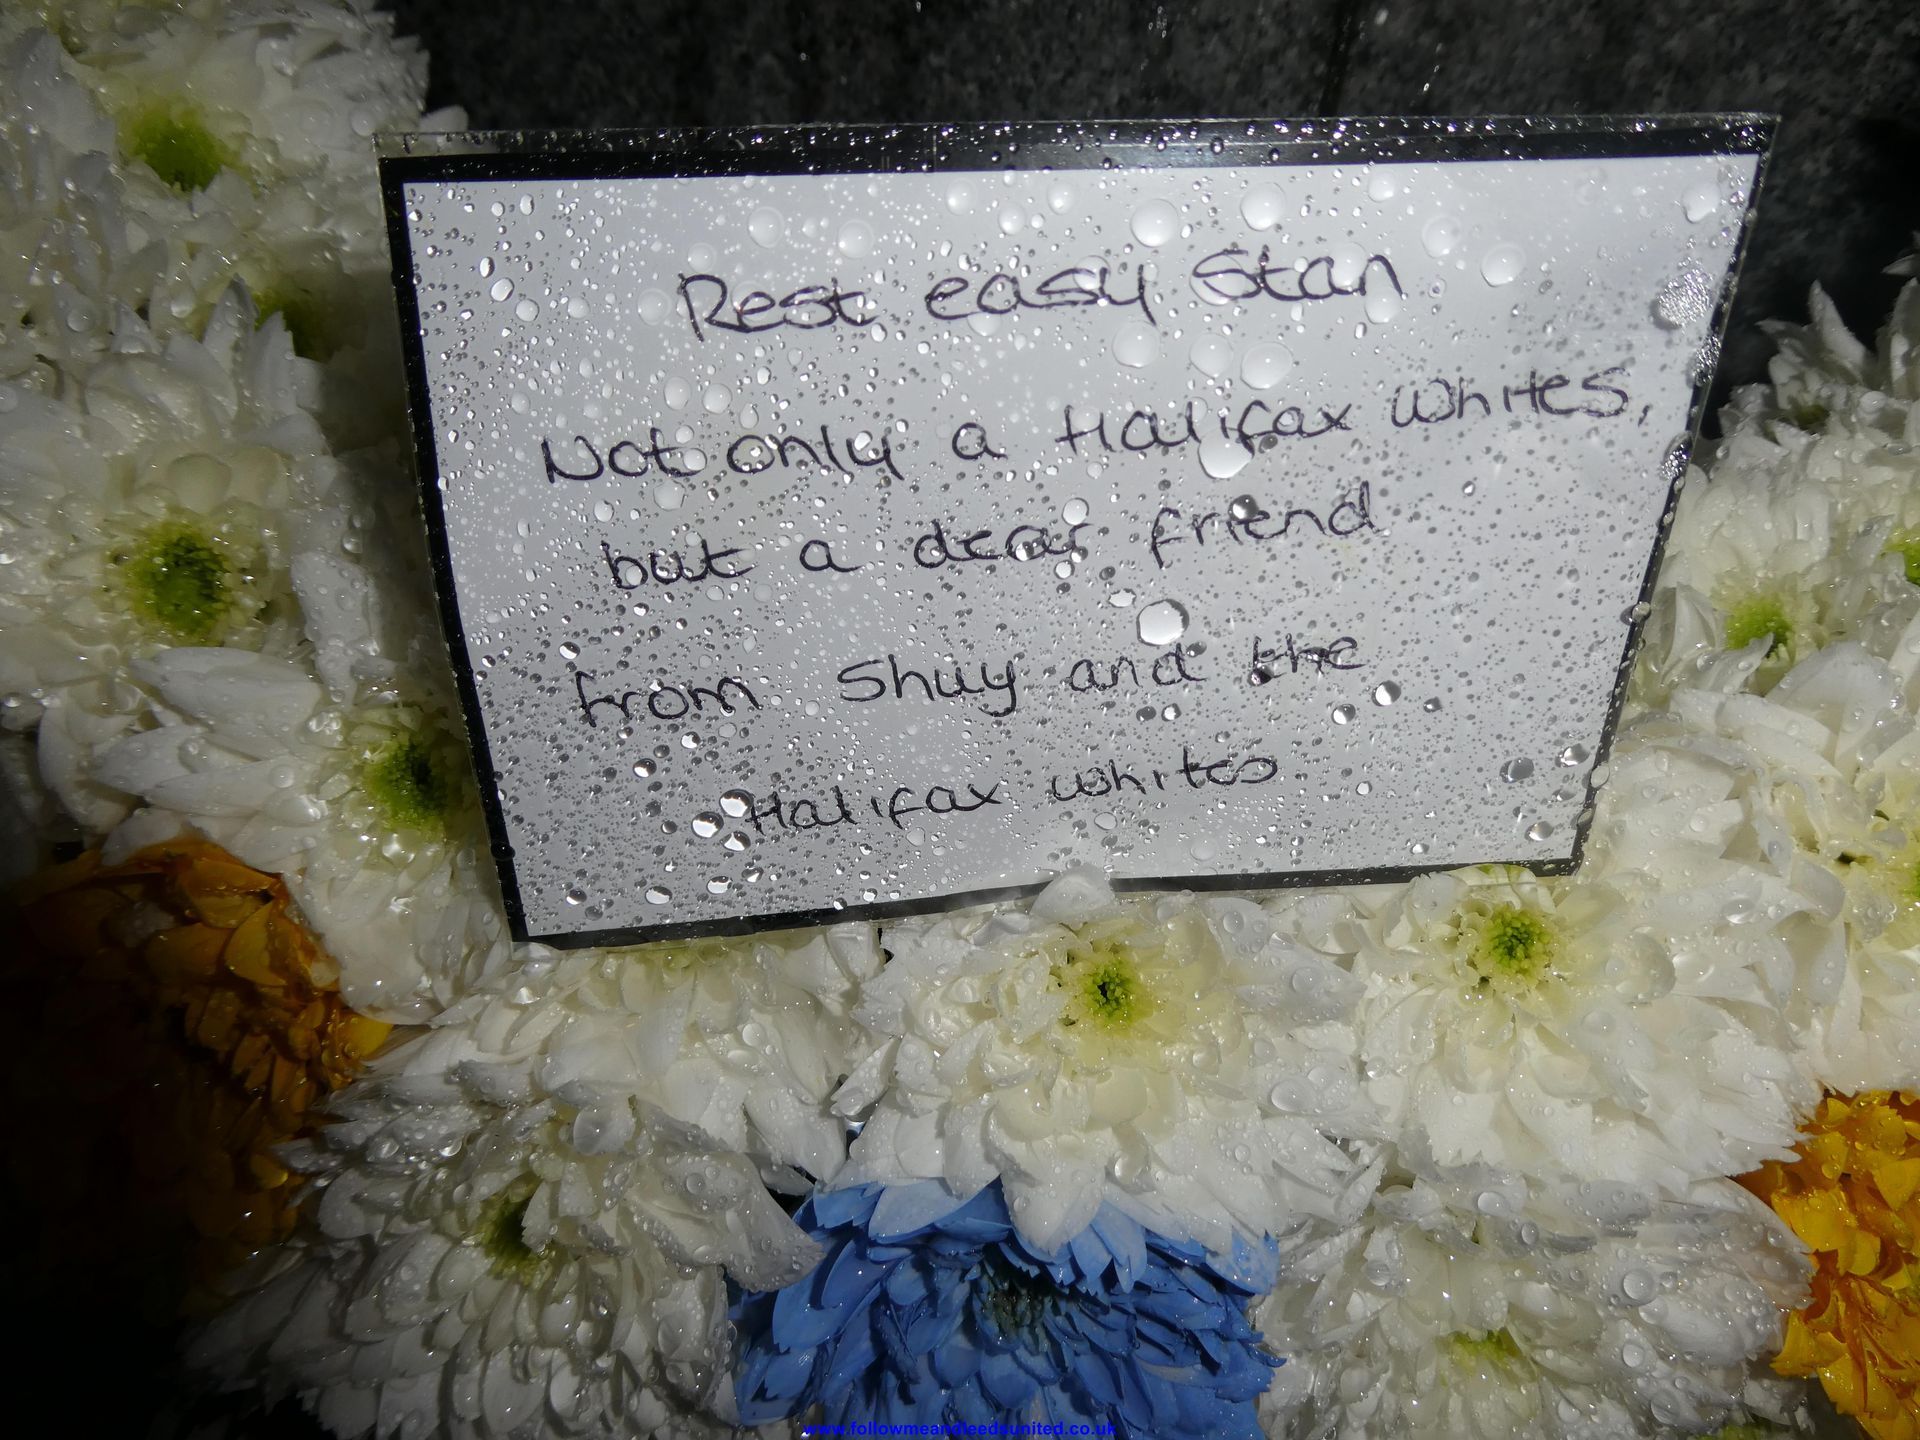 Rest easy Stan
Not only a Halifax Whites,
but a dear friend
from Shuy and the
Halifax Whites
www.followmeandleedsunited.co.uk